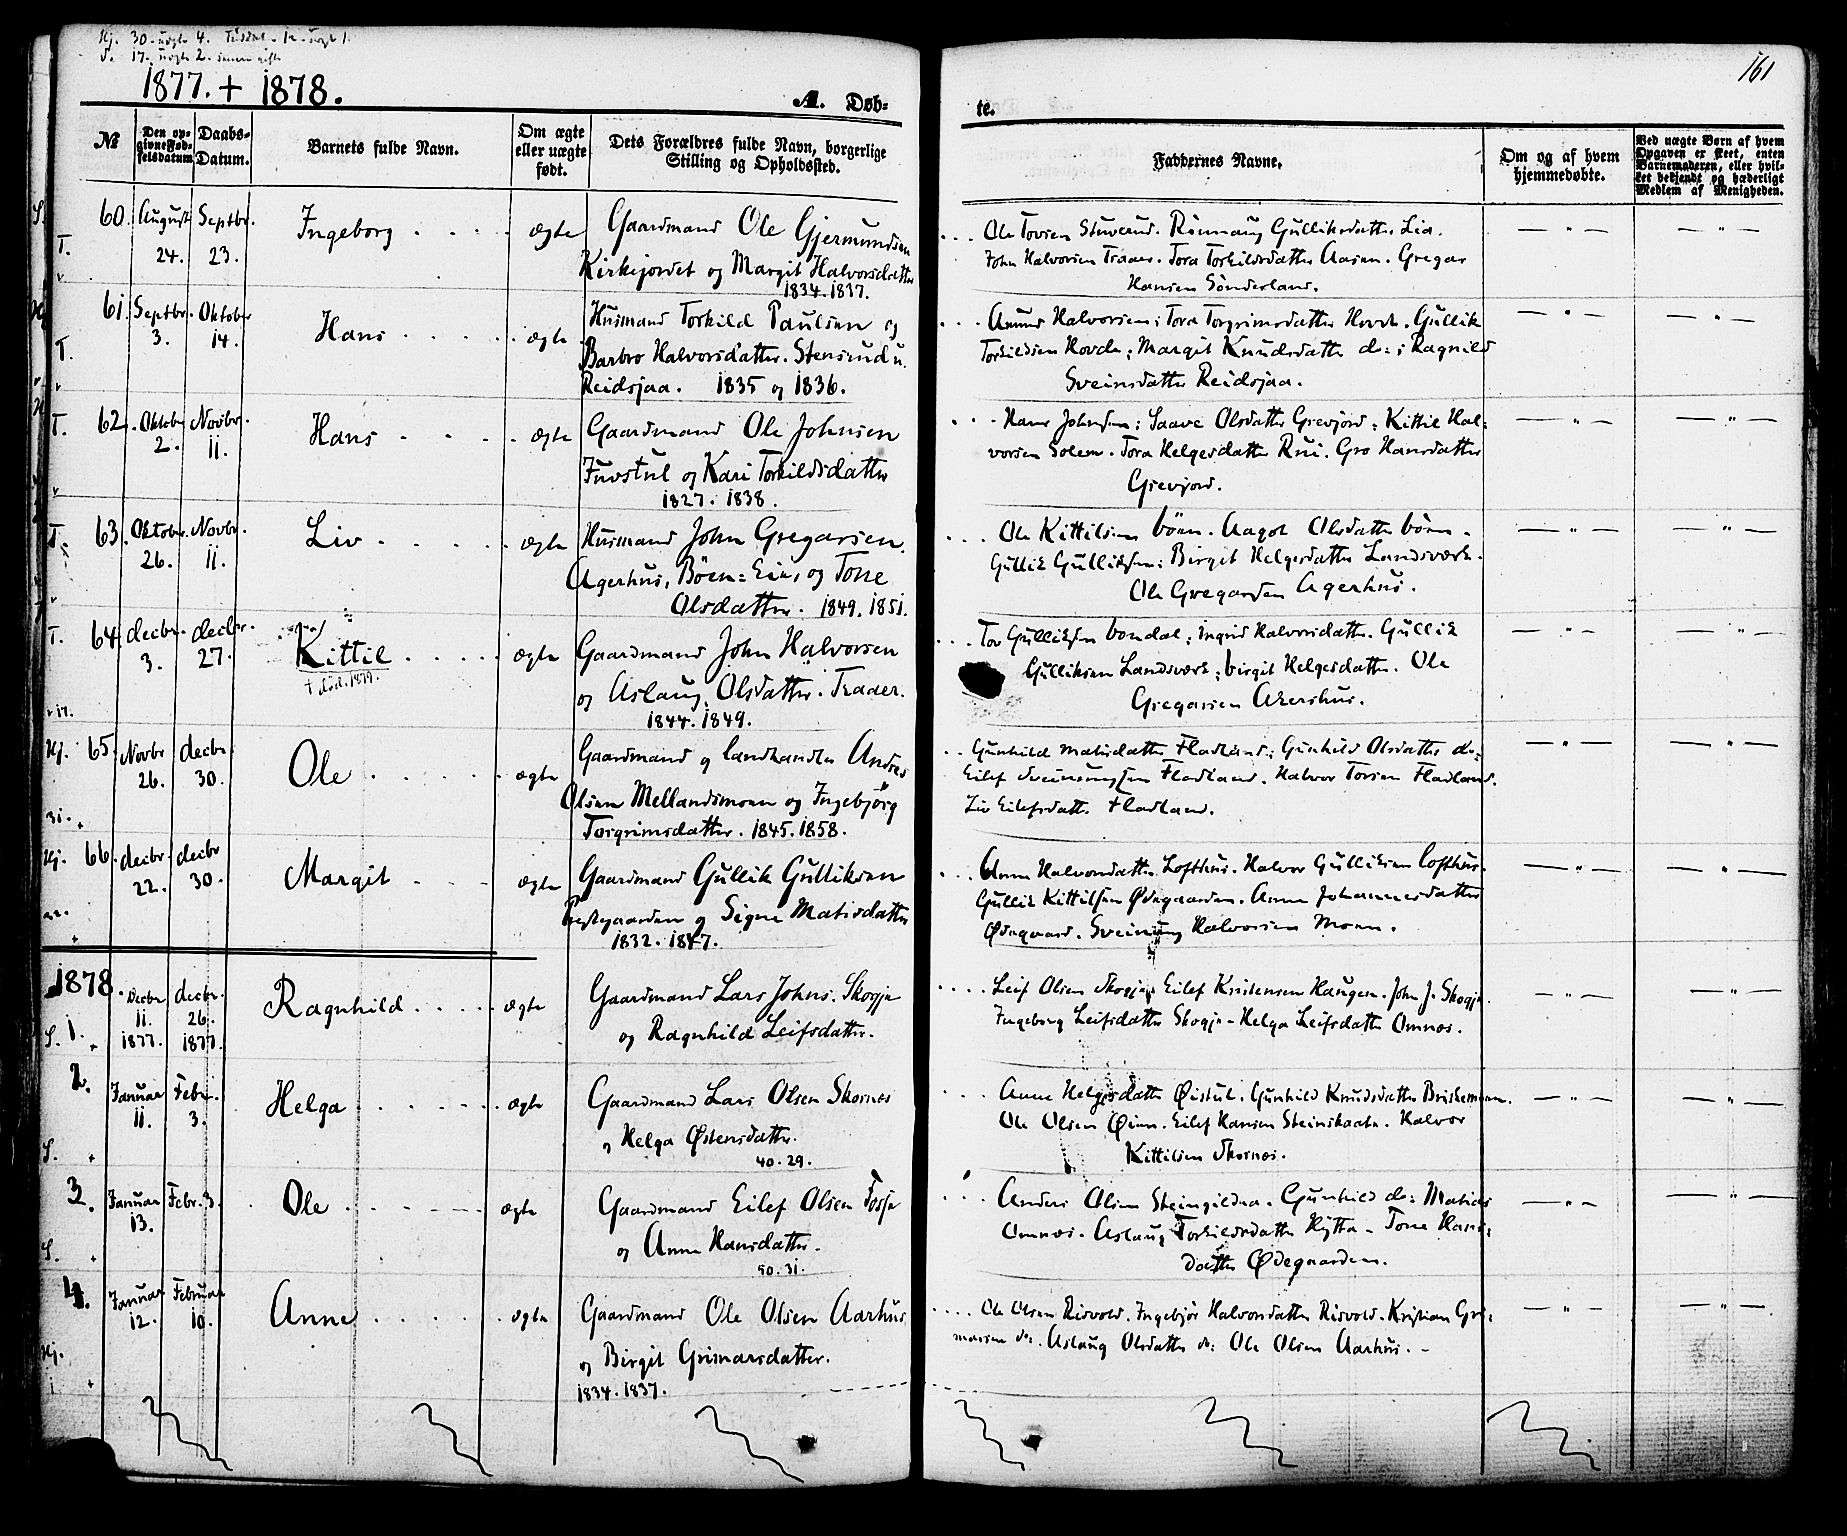 Hj. 30. uægte 4. Tudal. 12. uægte 1.
S. 17. uægte 2.
161
1877. + 1878.
A. Døb=
te.
№
Den op-
givne Fød-
selsdatum
Daabs-
Datum.
Barnets fulde Navn.
Om ægte
eller uægte
født.
Dets Forældres fulde Navn, borgerlige
Stilling og Opholdssted.
Faddernes Navne.
Om og af hvem
hjemmedøbte.
Ved uægte Børn af hvem
Opgaven er skeet, enten
Barnemoderen, eller hvil-
ket bekjendt og hæderligt
Medlem af Menigheden.
S. T. 60. August 24. Septbr. 23. Ingeborg . . . . ægte
Gaardmand Ole Gjermundsen
Kirkejordet og Margit Halvorsdatter
1834. 1837.
Ole Tovsen Stuverud. Rønnaug Gulliksdatter Lia.
John Halvorsen Traaer. Tora Torkildsdatter Aasen. Gregar
Hansen Sønderland.
T. 61. Septbr. 3. Oktober 14. Hans . . . . ægte
Husmand Torkild Paulsen og
Barbro Halvorsdatter. Stensrud u.
Reidsjaa. 1835 og 1836.
Amund Halvorsen; Tora Torgrimsdatter Hovde. Gullik
Torkildsen Hovde; Margit Knudsdatter do: ; Ragnild
Sveinsdatter Reidsjaa.
T. 62. Oktober 2. Novbr. 11. Hans . . . . ægte
Gaardmand Ole Johnsen
Juvstul og Kari Torkildsdatter
1827. 1838.
Hans Johnsen; Saave Olsdatter Grevjord; Kittil Hal-
vorsen Solem. Tora Helgesdatter Rui. Gro Hansdatter
Grevjord.
T. 63. Oktober 26. Novbr. 11. Liv . . . . ægte
Husmand John Gregarsen.
Agerhus, Böen= Eie, og Tone
Olsdatter. 1849. 1851.
Ole Kittilsen böen. Aagot Olsdatter böen.
Gullik Gulliksen; Birgit Helgesdatter Landsværk.
Ole Gregarsen Agerhus.
T. 64. decbr. 3. decbr. 27. Kittil . . . . ægte
† død. 1879.
Gaardmand John Halvorsen
og Aslaug Olsdatter. Traaer.
1844. 1849.
Tov Gulliksen bondal; Ingrid Halvorsdatter. Gullik
Gulliksen Landsværk; birgit Helgesdatter. Ole
Gregarsen Akershus.
Hj. 65. Novbr 26. decbr. 30. Ole . . . . ægte
Gaardmand og landhandler Andres
Olsen Mellandsmoen og Ingebjørg
Torgrimsdatter. 1845. 1858.
Gunhild Matisdatter Fladland; Gunhild Olsdatter do=
Eilef Sveinungsen Fladland. Halvor Torsen Fladland.
Liv Eilefsdatter Fladland.
Hj. 66. decbr. 22. decbr 30. Margit . . . ægte
Gaardmand Gullik Gulliksen
Prestegaarden og Signe Matisdatter
1832. 1847.
Anne Halvorsdatter Lofthus. Halvor Gulliksen lofthus.
Gullik Kittilsen Ødegaarden. Anne Johannesdatter
Ødegaard. Sveinung Halvorsen Moen.
1878
S. 1. Decbr 11. 1877 decbr. 26. 1877. Ragnhild . . . . ægte
Gaardmand Lars Johns. Skogje
og Ragnhild Leifsdatter.
Leif Olsen Skogje. Eilef Kristensen Haugen. John J. Skogje.
Ingeborg Leifsdatter Skogje - Helga Leifsdatter Omnes.
S. 2. Januar 11. Febr. 3. Helga . . . . ægte
Gaardmand Lars Olsen Skornes
og Helga Østensdatter.
40. 29.
Anne Helgesdatter Øistul. Gunhild Knudsdatter Briskemoen.
Ole Olsen Øien. Eilef Hansen Steinskaata. Halvor
Kittilsen Skornes.
S. 3. Januar 13. Febr. 3. Ole . . . . ægte
Gaardmand Eilef Olsen Fosje
og Anne Hansdatter.
50. 31.
Anders Olsen Steingildra. Gunhild do: Matias
Omnes. Aslaug Torkildsdatter Hytta - Tone Hans-
datter Ødegaarden.
Hj. 4. Januar 12. Februar 10. Anne . . . . ægte
Gaardmand Ole Olsen Aarhus,
og Birgit Grimarsdatter.
1834. 1837.
Ole Olsen Risvold. Ingebjør Halvorsdatter Risvold. Kristian Gri-
marsen do: Aslaug Olsdatter do: Ole Olsen Aarhus.